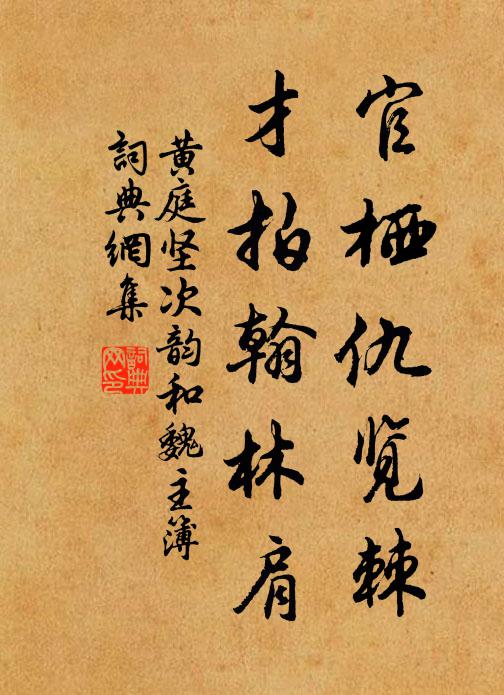 官栖仇览棘
才拍翰林肩
黄庭坚次韵和魏主簿
詞典網集
詞典
网印